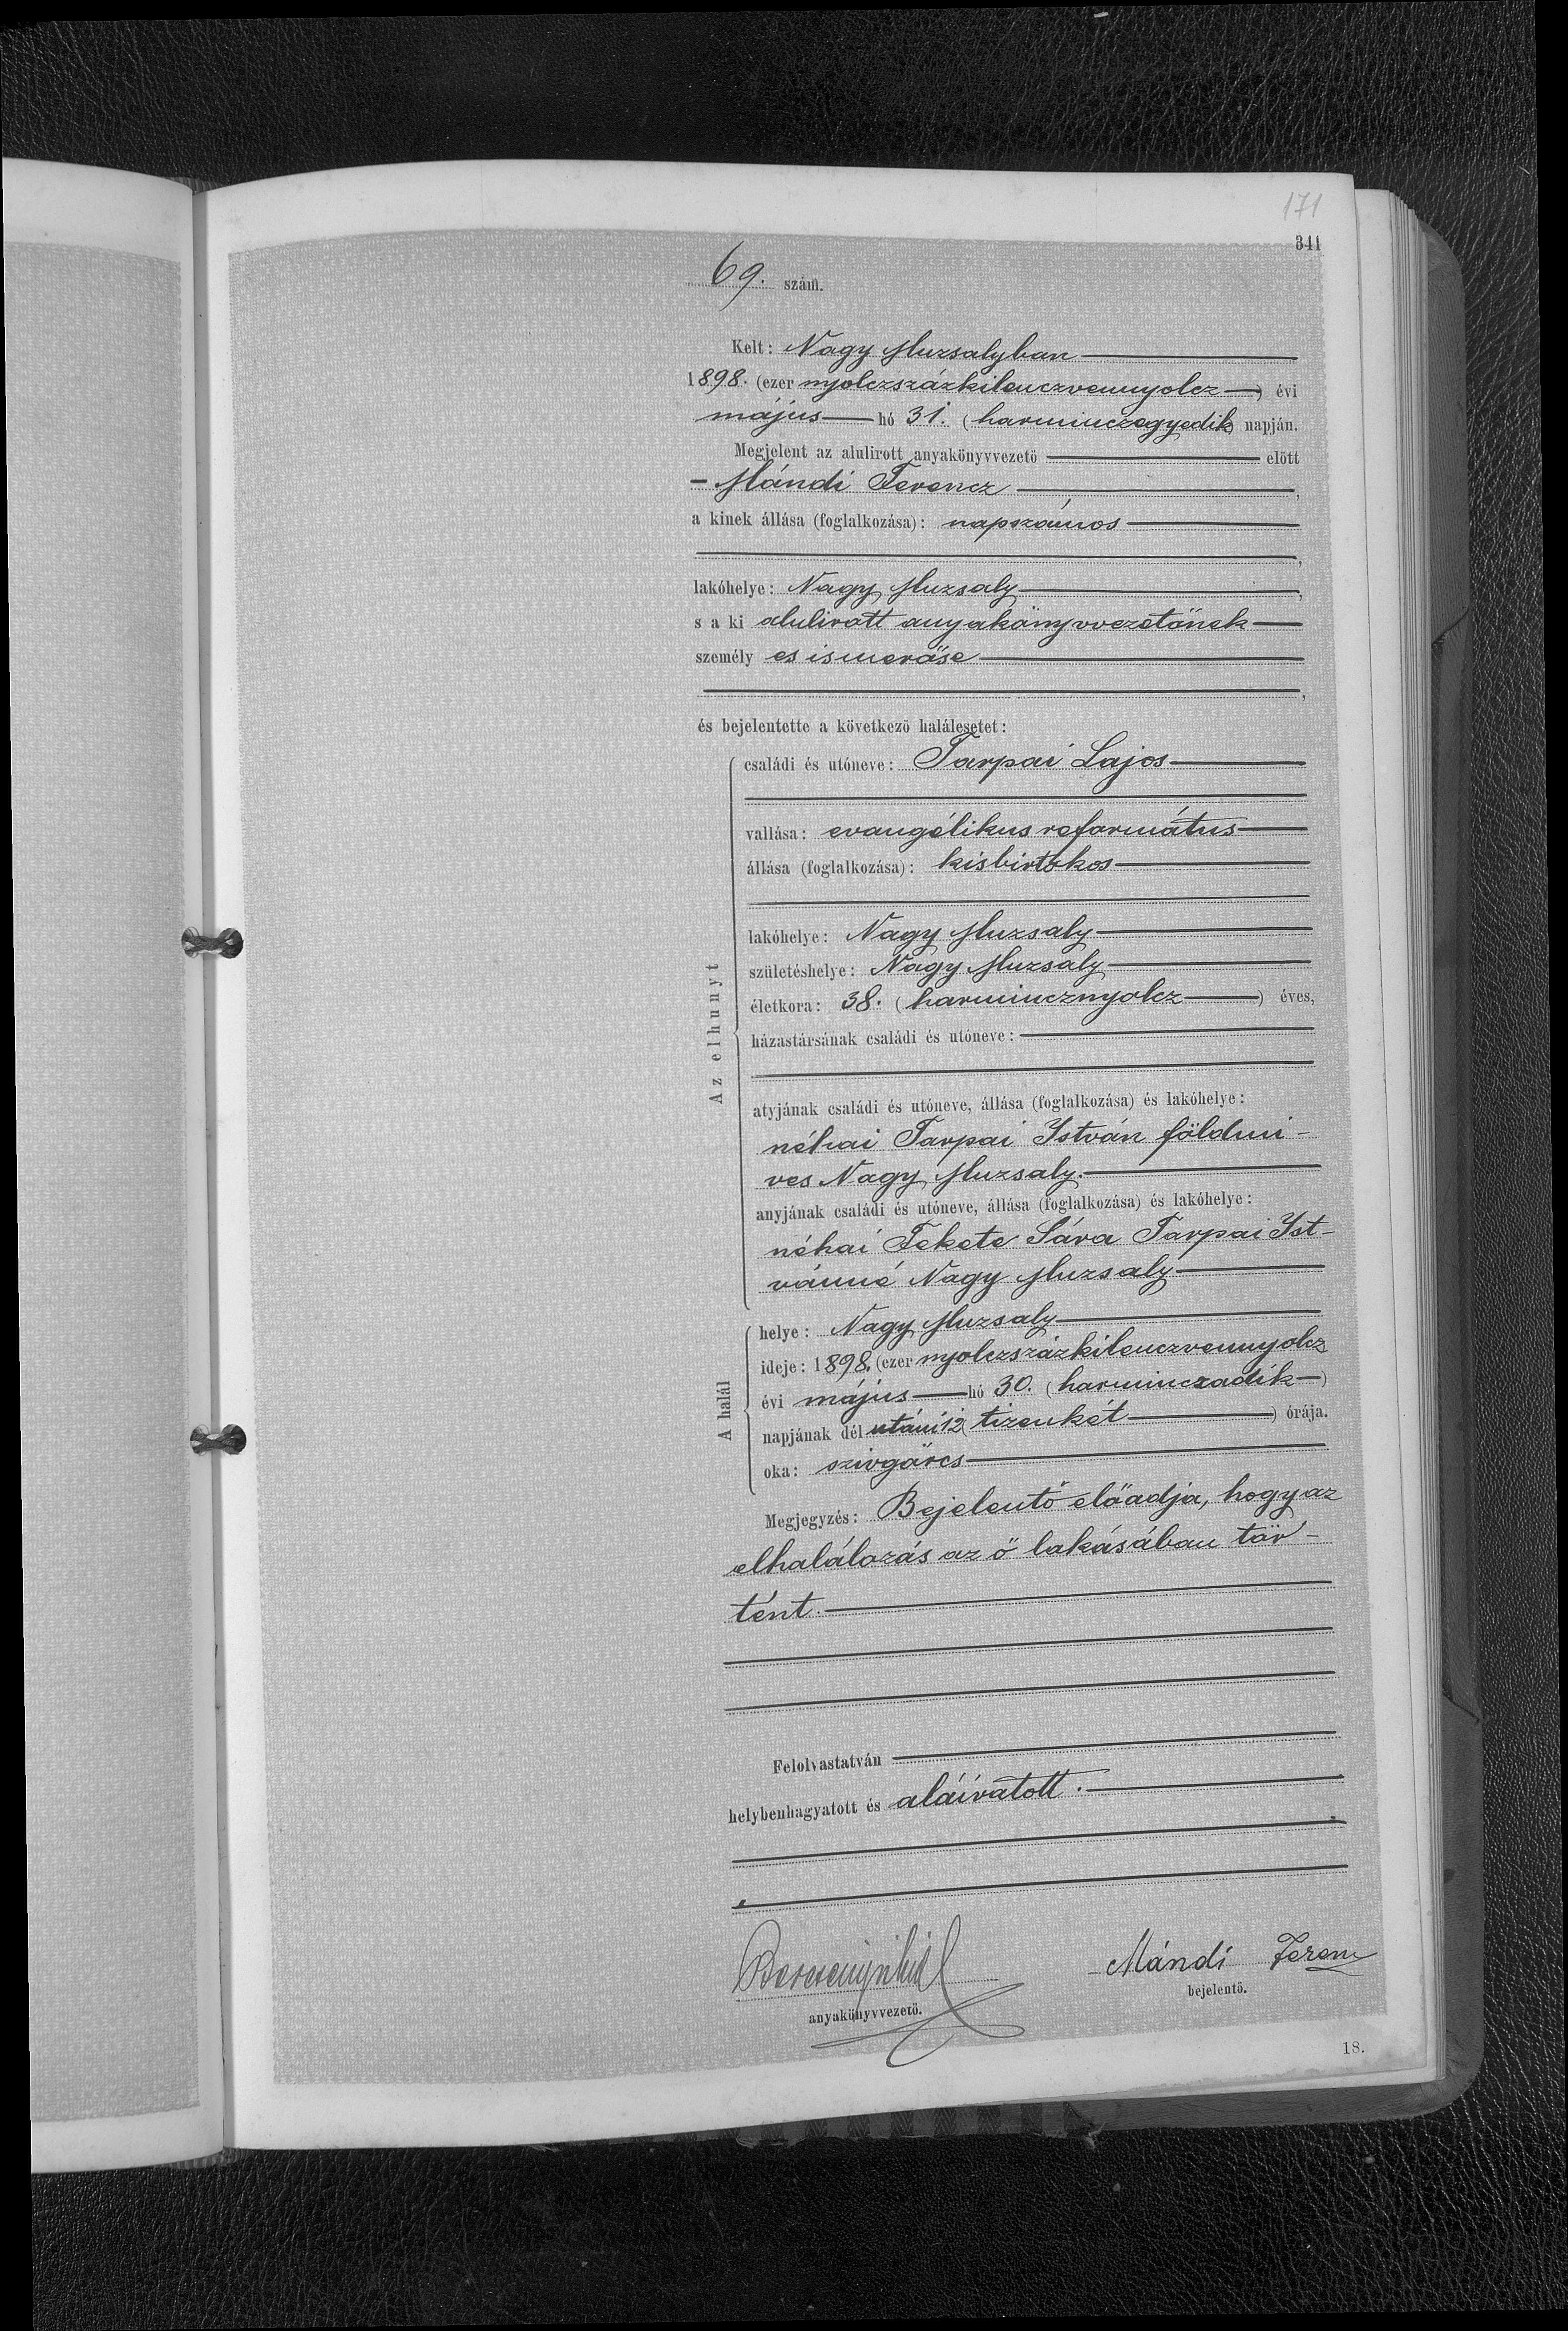 171
341
69. szám.
Kelt: Nagy Muzsalyban
1898. (ezer nyolczszázkilenczvennyolcz) évi
május hó 31. (harminczegyedik) napján.
Megjelent az alulirott anyakönyvvezető előtt
Mándi Ferencz,
a kinek állása (foglalkozása): napszámos
,
lakóhelye: Nagy Muzsaly,
s a ki alulirott anyakönyvvezetőnek
személyes ismerőse
,
és bejelentette a következő halálesetet:
Az elhunyt
családi és utóneve: Tarpai Lajos
vallása: evangélikus református
állása (foglalkozása): kisbirtokos
lakóhelye: Nagy Muzsaly
születéshelye: Nagy Muzsaly
életkora: 38. (harmincznyolcz) éves,
házastársának családi és utóneve:
atyjának családi és utóneve, állása (foglalkozása) és lakóhelye:
néhai Tarpai István földmi-
ves Nagy Muzsaly.
anyjának családi és utóneve, állása (foglalkozása) és lakóhelye:
néhai Fekete Sára Tarpai Ist-
vánné Nagy Muzsaly
A halál
helye: Nagy Muzsaly
ideje: 1898. (ezer nyolczszázkilenczvennyolcz
évi május hó 30. (harminczadik)
napjának dél utáni 12 (tizenkét) órája.
oka: szivgörcs
Megjegyzés: Bejelentő előadja, hogy az
elhalálozás az ő lakásában tör-
tént.
Felolvastatván
helybenhagyatott és aláíratott.
Mándi Ferenc
anyakönyvvezető.
bejelentő.
18.